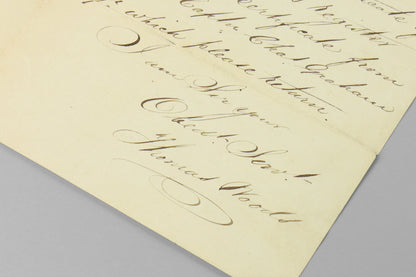 Register
Certificate from
Captn. Chas. Graham
which please return.
I am Sir your
Obedt. Servt.
Thomas Woods